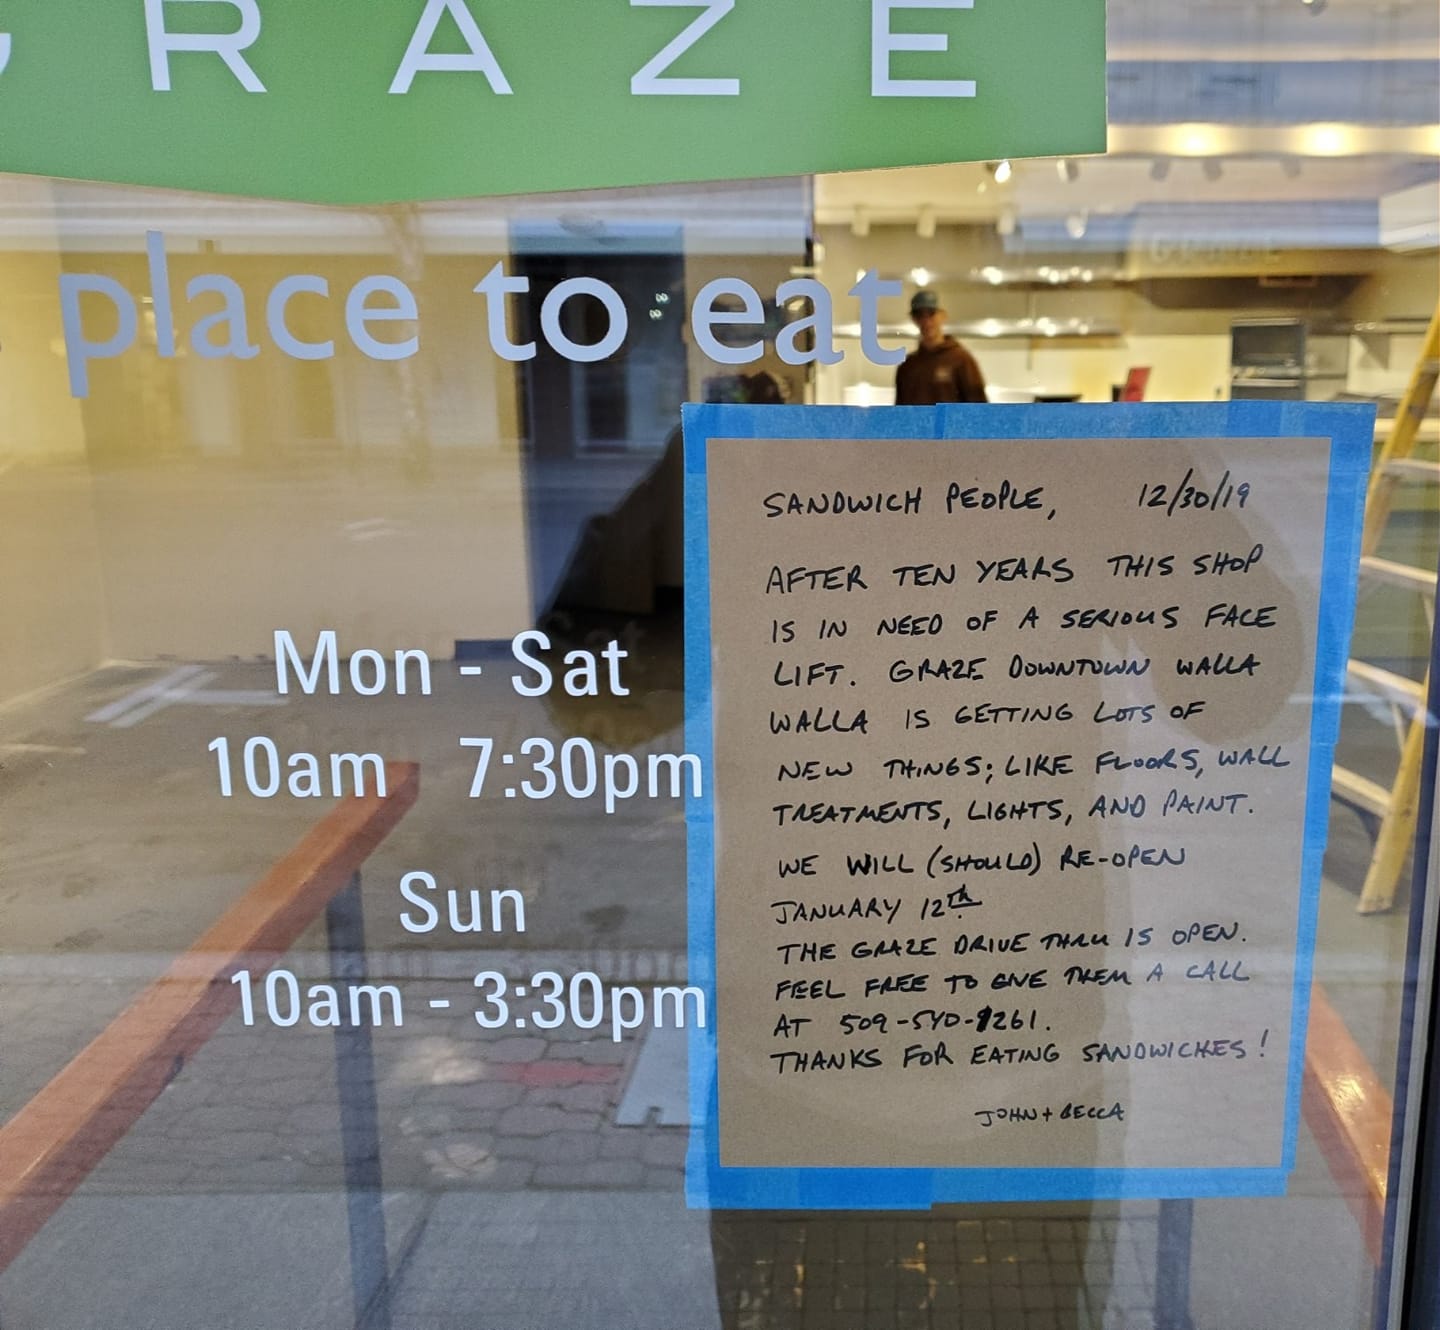 GRAZE
place to eat
Mon - Sat
10am 7:30pm
Sun
10am - 3:30pm
SANDWICH PEOPLE, 12/30/19
AFTER TEN YEARS THIS SHOP
IS IN NEED OF A SERIOUS FACE
LIFT. GRAZE DOWNTOWN WALLA
WALLA IS GETTING LOTS OF
NEW THINGS; LIKE FLOORS, WALL
TREATMENTS, LIGHTS, AND PAINT.
WE WILL (SHOULD) RE-OPEN
JANUARY 12TH
THE GRAZE DRIVE THRU IS OPEN.
FEEL FREE TO GIVE THEM A CALL
AT
THANKS FOR EATING SANDWICHES!
JOHN + BECCA